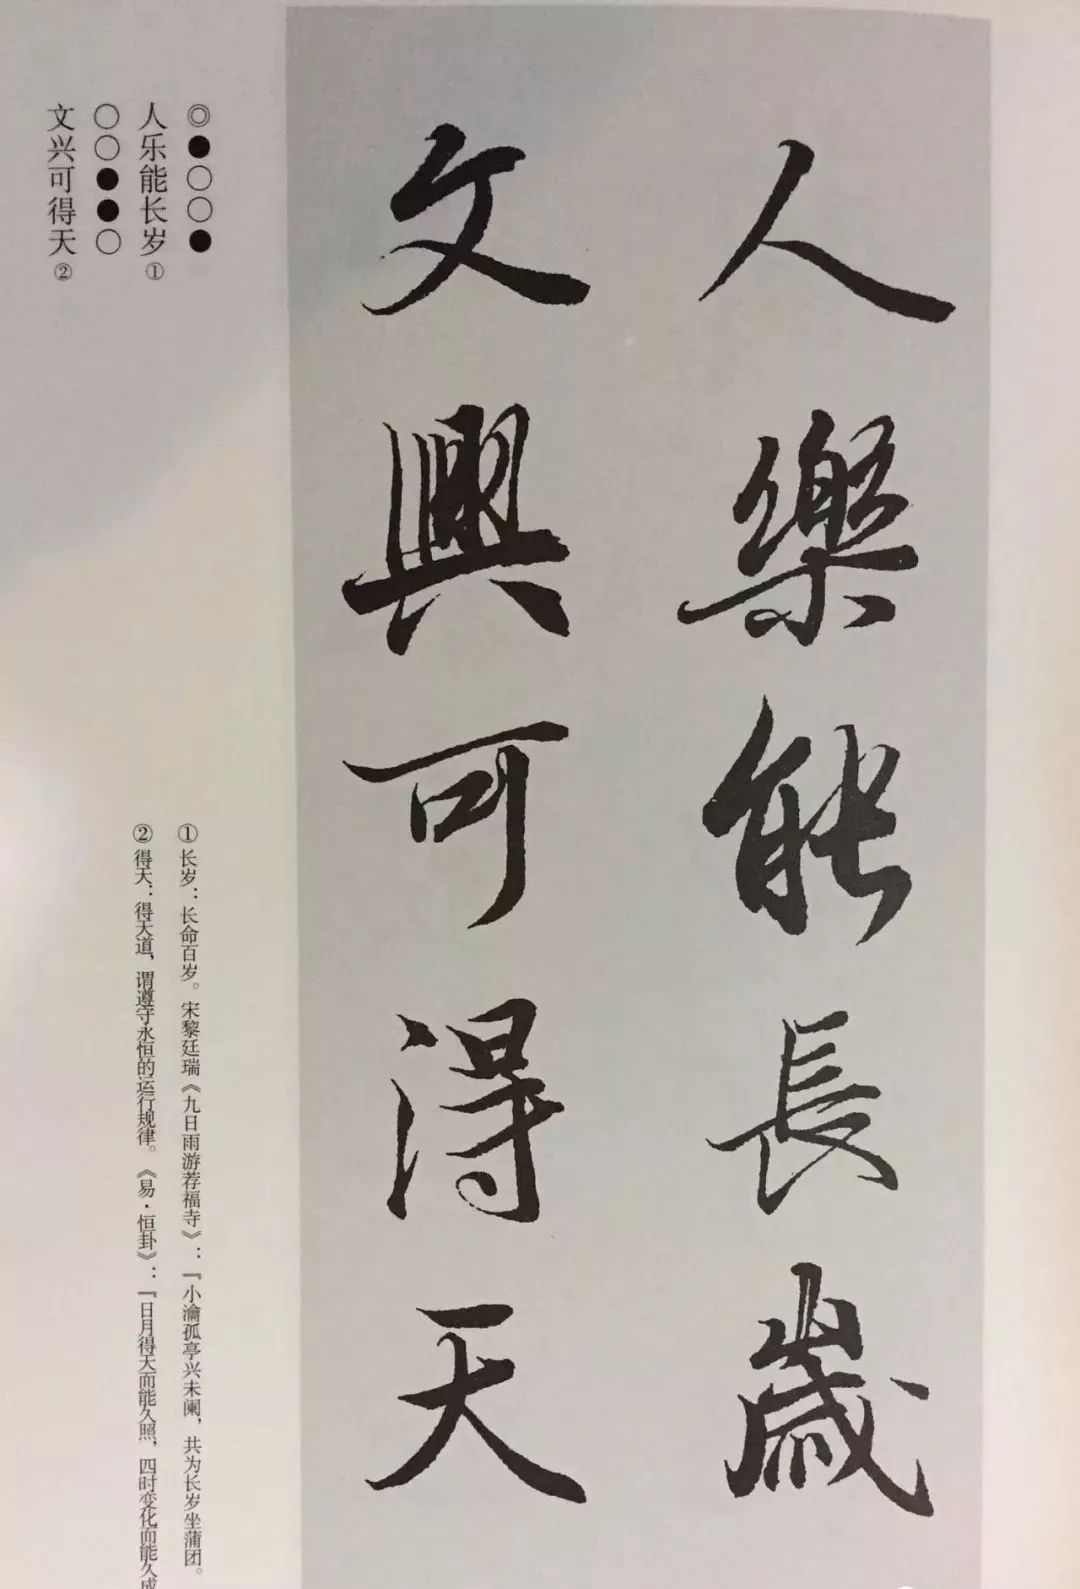 人樂能長歲
文興可得天
◎●○○●
人乐能长岁①
○○●●○
文兴可得天②
①长岁：长命百岁。宋黎廷瑞《九日雨游荐福寺》：『小瀹孤亭兴未阑，共为长岁坐蒲团。
②得天：得天道，谓遵守永恒的运行规律。《易·恒卦》：『日月得天而能久照，四时变化而能久成